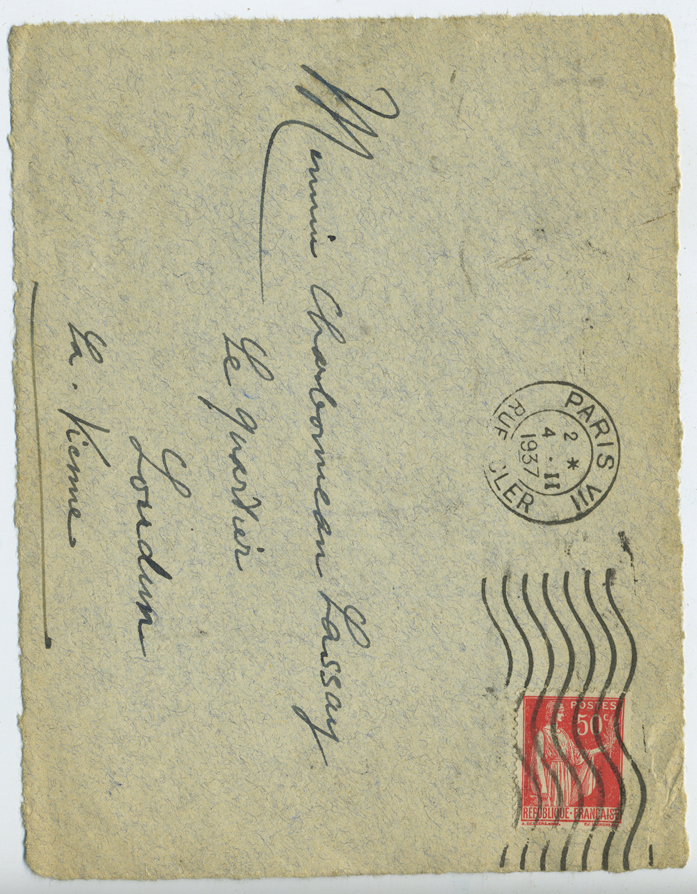 PARIS VII
2 *
4 . II
1937
RUE CLER
POSTES
50c
REPUBLIQUE-FRANÇAISE
Monsieur Charbonneau Lassay.
Le quartier
Loudun
La. Vienne